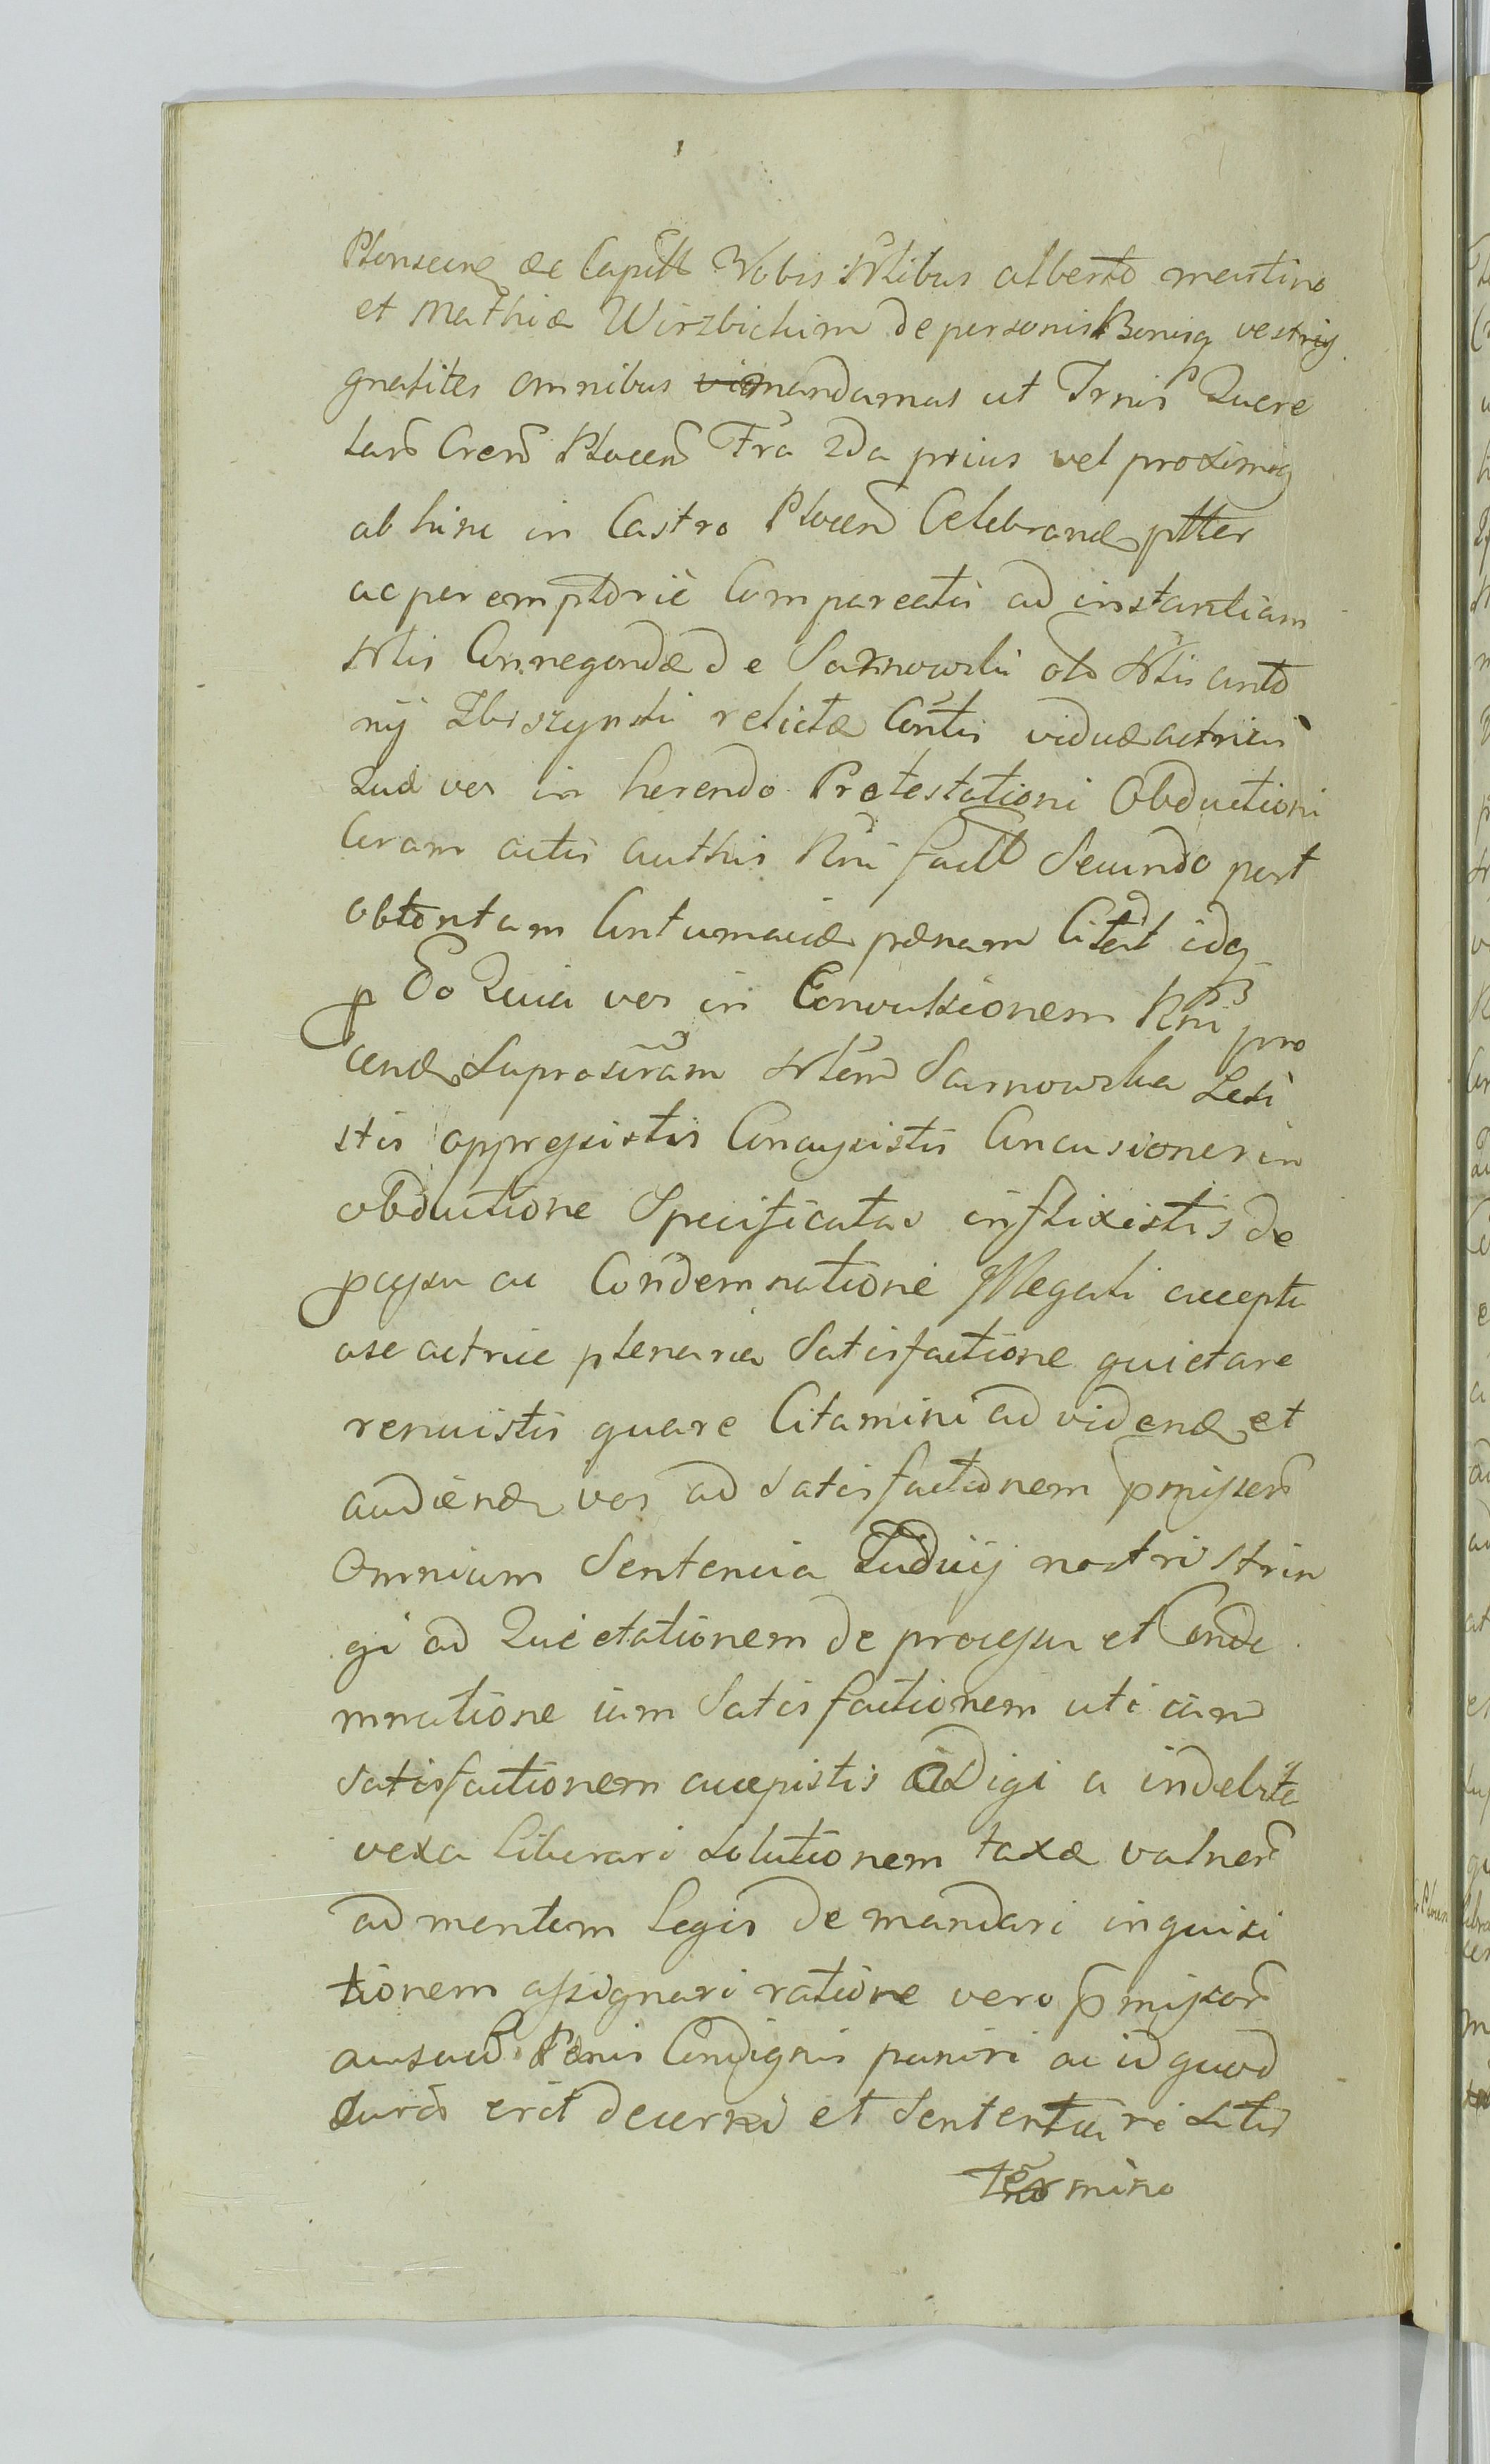 Plonscens &c Capitt Vobis Nlibus alberto martino
et Mathiæ Wirzbickim de personis Bonisq vestris
gnalites omnibus mandamus ut Trnis Quere
larũ Crerũ Plocen Fra 2da prius vel proximis
abhinc in Castro Plocen Celebrand ptter
ac peremptorie Compareatis ad instantiam
Nlis Cunnegondæ de Sarnowski olo Nlis anto
nij Zbiszynski relictæ Contis viduæ actricis
Quæ vos in herendo Protestationi Obductioni
Coram actis authis Rni fact Secundo post
obtontam Contumaciæ pænam Citat idq
p Eo Quia vos in Convulsionem Rni pro
cend Suprascram Nlem Sarnowska Lesi
stis oppressistis Concussistis Concusiones in
obductione Specificatas inflixistis de
pcessu ac Condemnatione Illegali accepta
ase actrice plenaria Satisfactione quietare
renuistis quare Citamini ad videnđ et
audienđ vos ad Satisfactionem pmissorũ
Omnium Sentencia Iudicij nostri strin
gi ad Quietationem de processu et Conde
mnatione iam Satisfactionem uti iam
Satisfactionem accepistis adigi a indebita
vexa liberari Solutionem taxæ vulnerũ
ad mentem Legis demandari inquisi
tionem assignari ratione vero pmissorũ
ausuũ Pænis Condignis puniri ac id quod
Iuris erit decerni et Sententiari Sitis
Termino